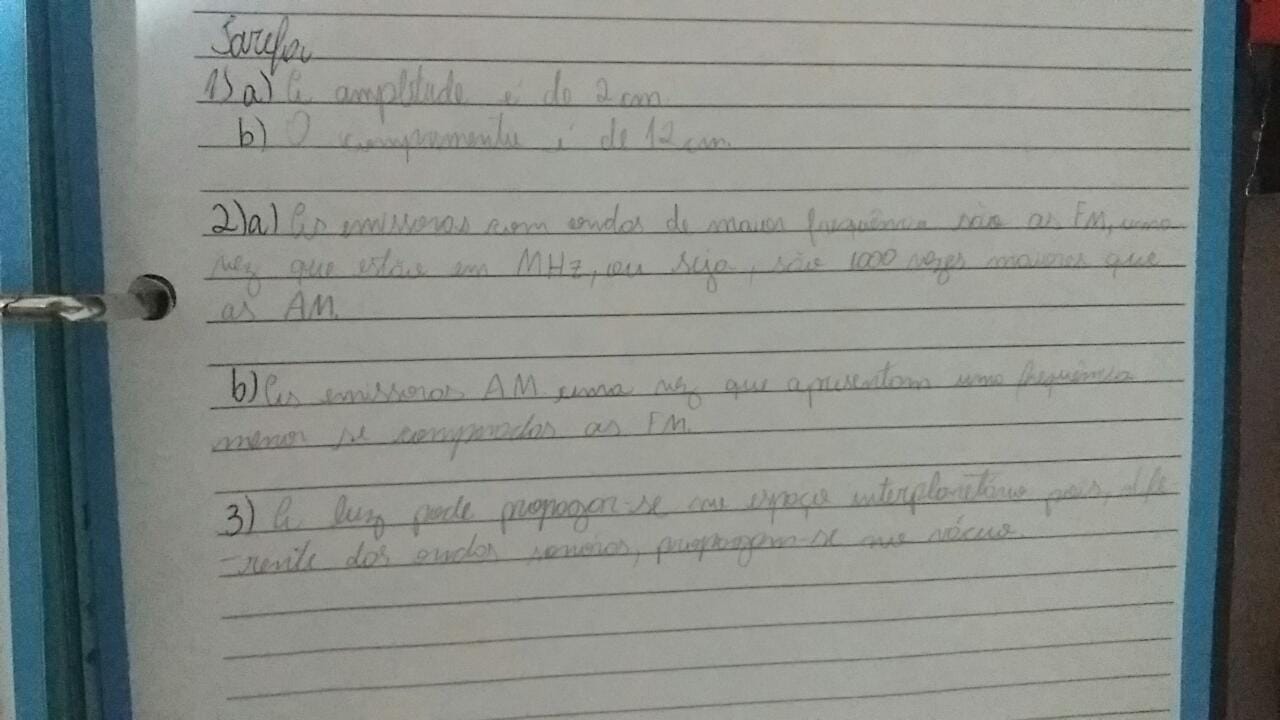 Tarefa
1) a) A amplitude é de 2 cm.
b) O comprimento é de 12 cm.
2) a) As emissoras com ondas de maior frequência são as FM, uma
vez que estão em MHz, ou seja, são 1000 vezes maiores que
as AM.
b) As emissoras AM uma vez que apresentam uma frequência
menor se comparadas as FM.
3) A luz pode propagar-se no espaço interplanetário pois, dife-
-rente das ondas sonoras, propagam-se no vácuo.